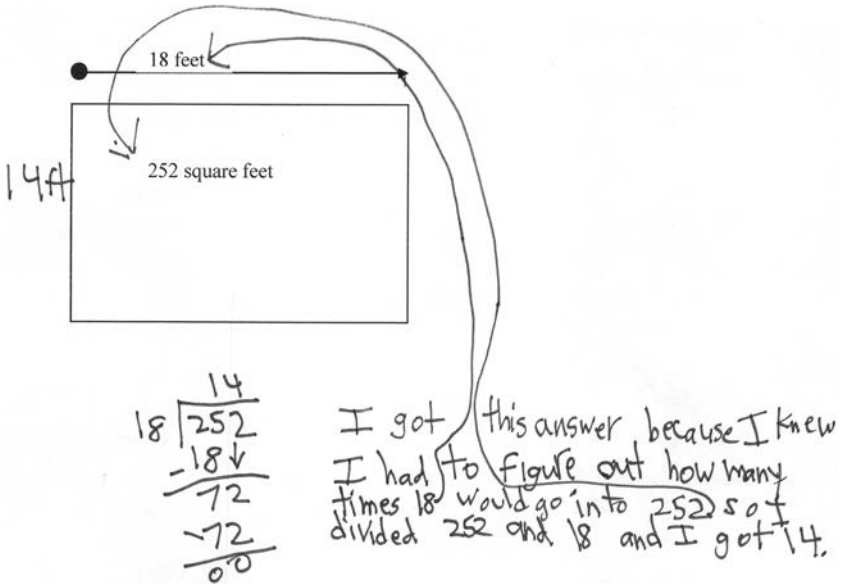 18 feet
252 square feet
14ft
14
18 252
-18
72
-72
00
I got this answer because I knew
I had to figure out how many
times 18 would go into 252 so I
divided 252 and 18 and I got 14.